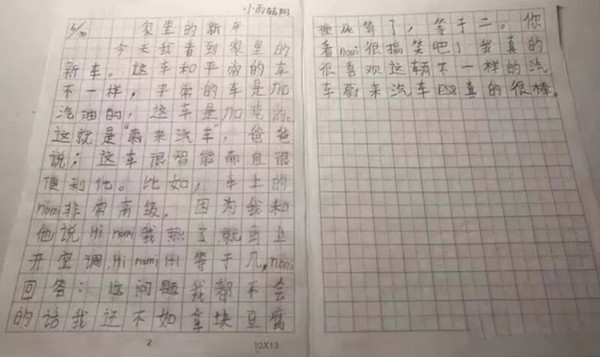 小雨轩阳
5/30 家里的新车
今天我看到家里的
新车。这车和平常的车
不一样，平常的车是加
汽油的，这车是加电的。
这就是“蔚来汽车”，爸爸
说：这车很智能而且很
便利化。比如，车上的
nomi非常高级，因为我和
他说Hi nomi我热了，就马上
开空调，Hi nomi 1+1等于几，nomi
回答：这问题我都不会
的话我还不如拿块豆腐
2
10X13
撞死算了，等于二。你
看nomi很搞笑吧！我真的
很喜观这辆不一样的汽
车蔚来汽车ES8真的很棒。